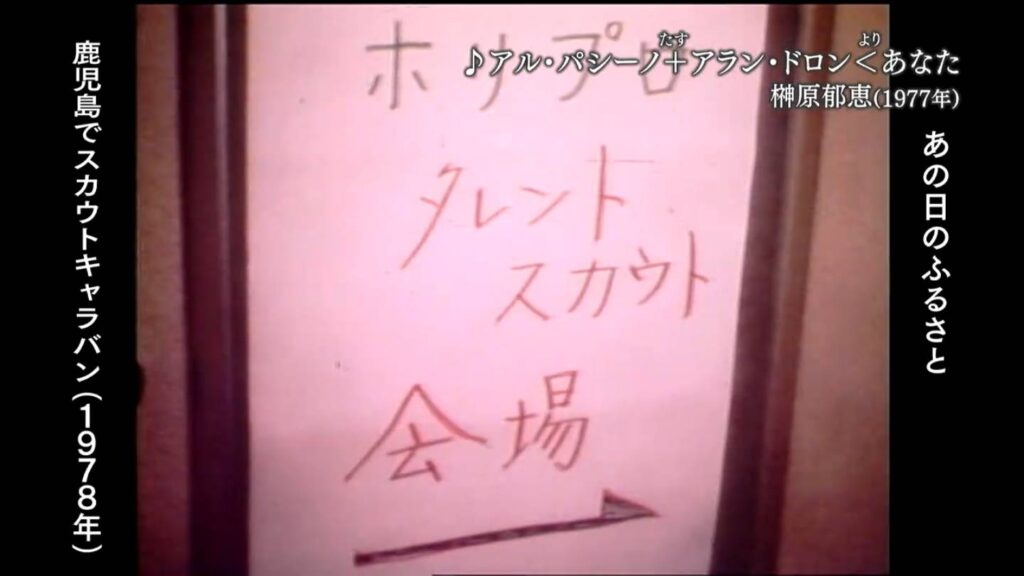 ♪アル・パシーノ+アラン・ドロン<あなた
たす
より
榊原郁恵(1977年)
あの日のふるさと
ホリプロ
タレント
スカウト
会場
鹿児島でスカウトキャラバン(1978年)